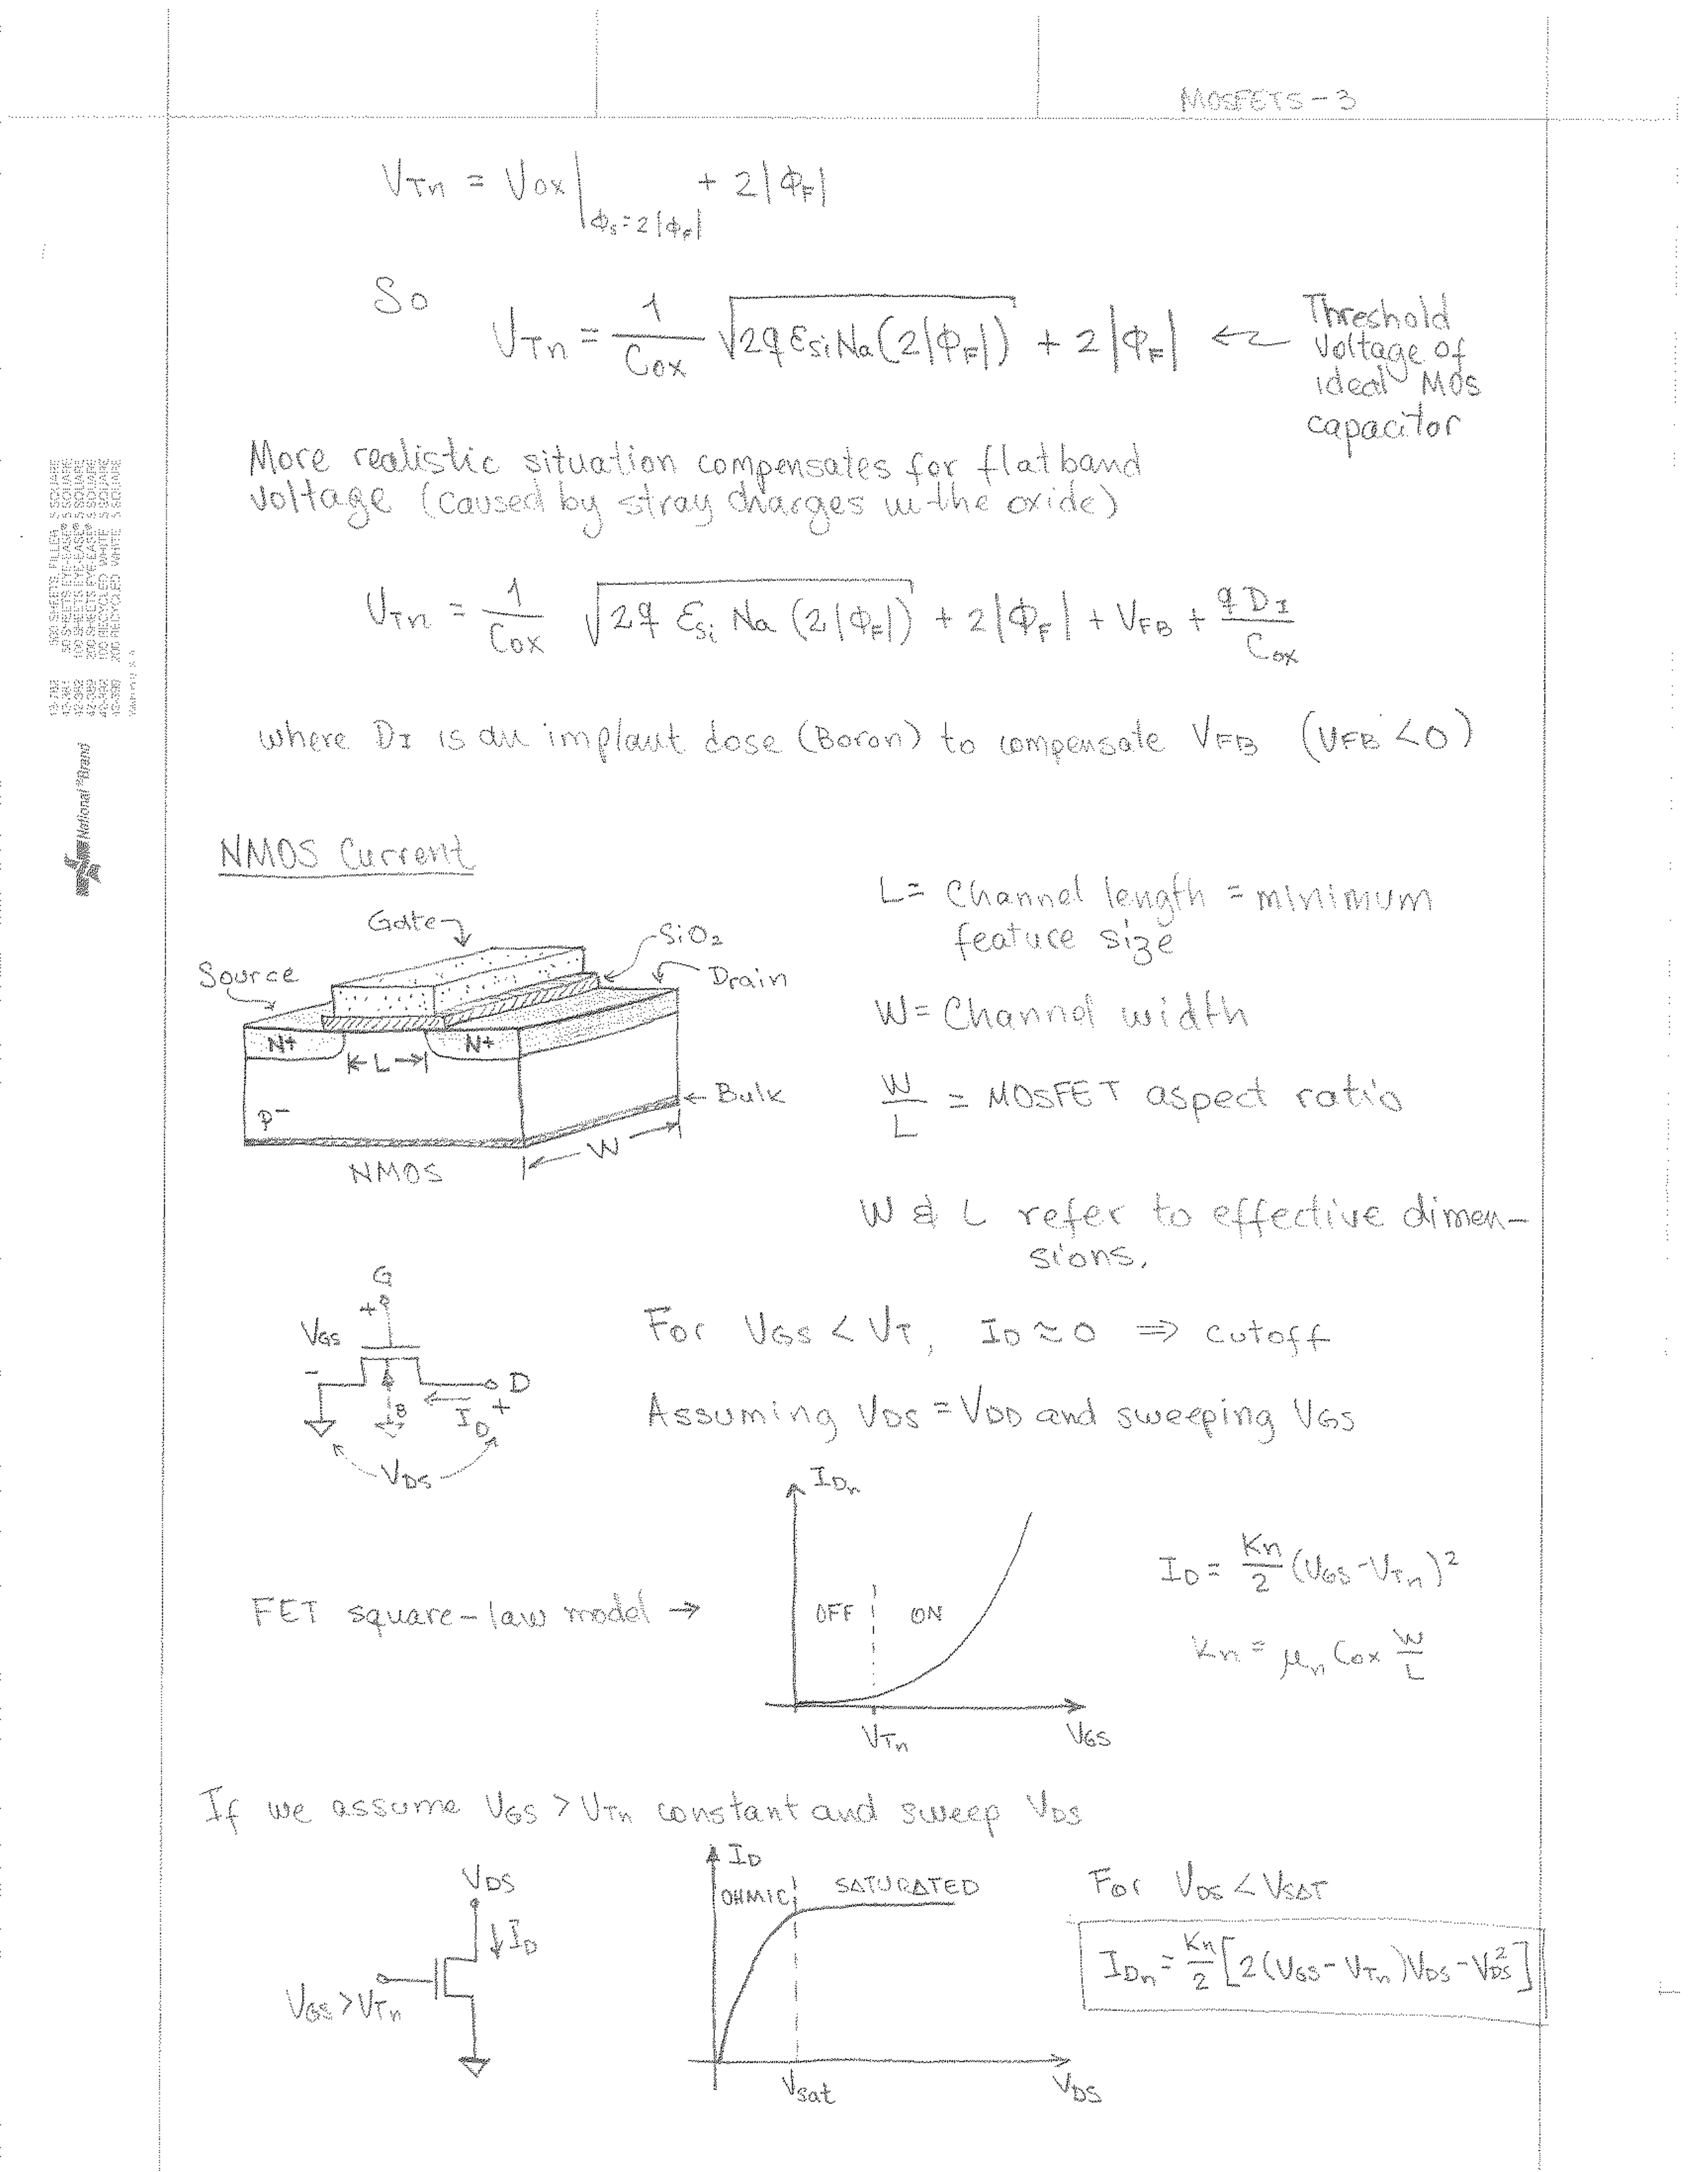 MOSFETS-3
V_Tn = V_ox |_{ϕ_s=2|ϕ_F|} + 2|ϕ_F|
So
V_Tn = 1/C_ox √(2q ε_Si N_a (2|ϕ_F|)) + 2|ϕ_F| ← Threshold
voltage of
ideal MOS
capacitor
More realistic situation compensates for flatband
voltage (caused by stray charges in the oxide)
V_Tn = 1/C_ox √(2q ε_Si N_a (2|ϕ_F|)) + 2|ϕ_F| + V_FB + qD_I/C_ox
where D_I is an implant dose (Boron) to compensate V_FB (V_FB < 0)
National® Brand
NMOS Current
Gate
SiO₂
Source
Drain
N+
L
N+
p⁻
Bulk
W
NMOS
L = Channel length = minimum
feature size
W = Channel width
W/L = MOSFET aspect ratio
W & L refer to effective dimen-
sions.
G
+
V_GS
-
D
B
I_D
+
V_DS
For V_GS < V_T, I_D ≈ 0 ⇒ cutoff
Assuming V_DS = V_DD and sweeping V_GS
FET square-law model →
I_Dn
OFF
ON
V_Tn
V_GS
I_D = K_n/2 (V_GS - V_Tn)²
K_n = μ_n C_ox W/L
If we assume V_GS > V_Tn constant and sweep V_DS
V_DS
I_D
V_GS > V_Tn
I_D
OHMIC
SATURATED
V_sat
V_DS
For V_DS < V_SAT
I_Dn = K_n/2 [2(V_GS - V_Tn)V_DS - V_DS²]